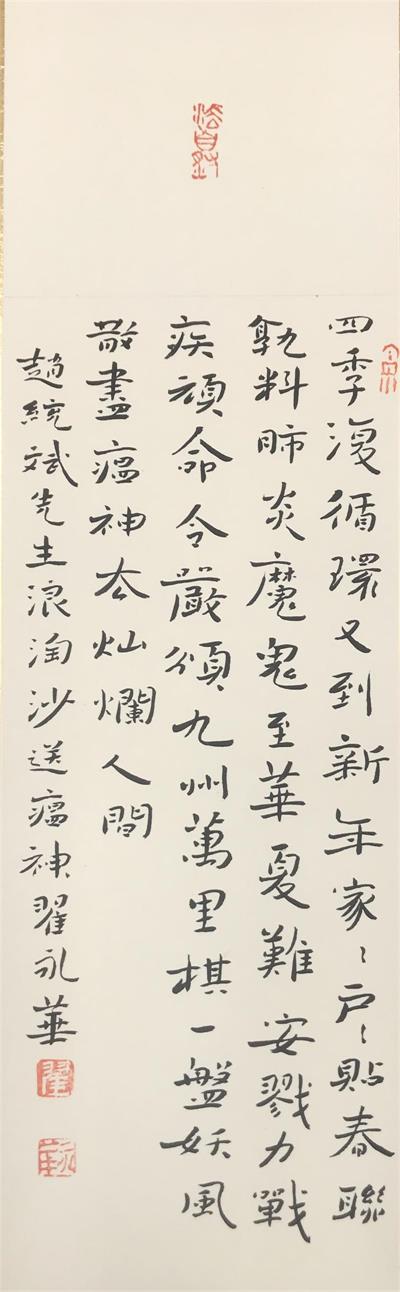 四季復循環又到新年家〻戶〻貼春聯
孰料肺炎魔鬼至華夏難安戮力戰
疾頑命令嚴頒九州萬里棋一盤妖風
散盡瘟神去灿爛人間
趙統斌先生浪淘沙送瘟神翟永華
翟